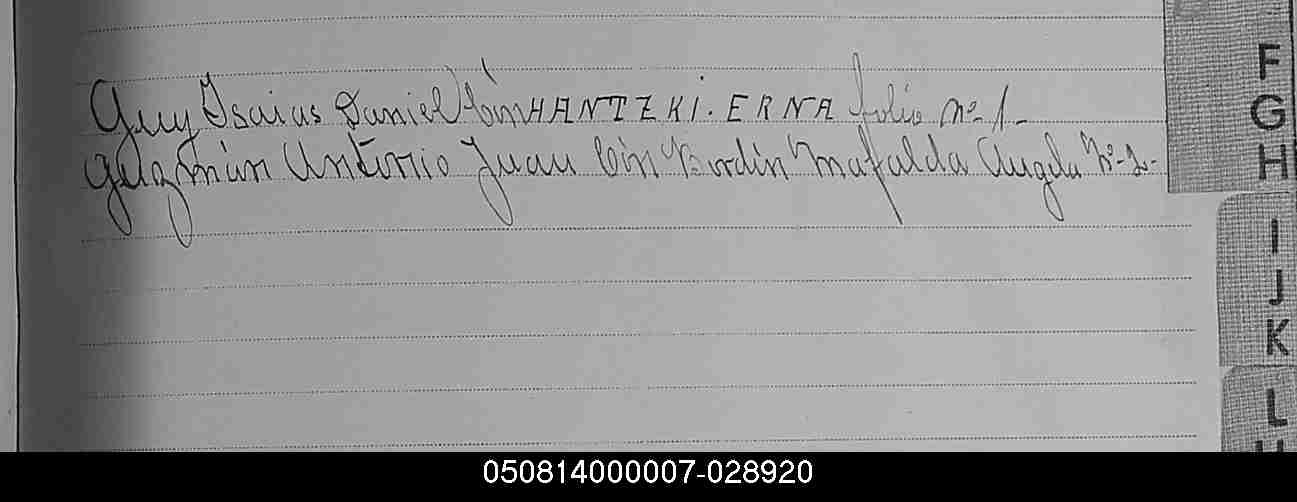 Guy Isaias Daniel con HANTZKI. ERNA folio Nº-1-
Guzmán Antonio Juan con Bordin Mafalda Angela Nº-2-
F
G
H
I
J
K
L
050814000007-028920